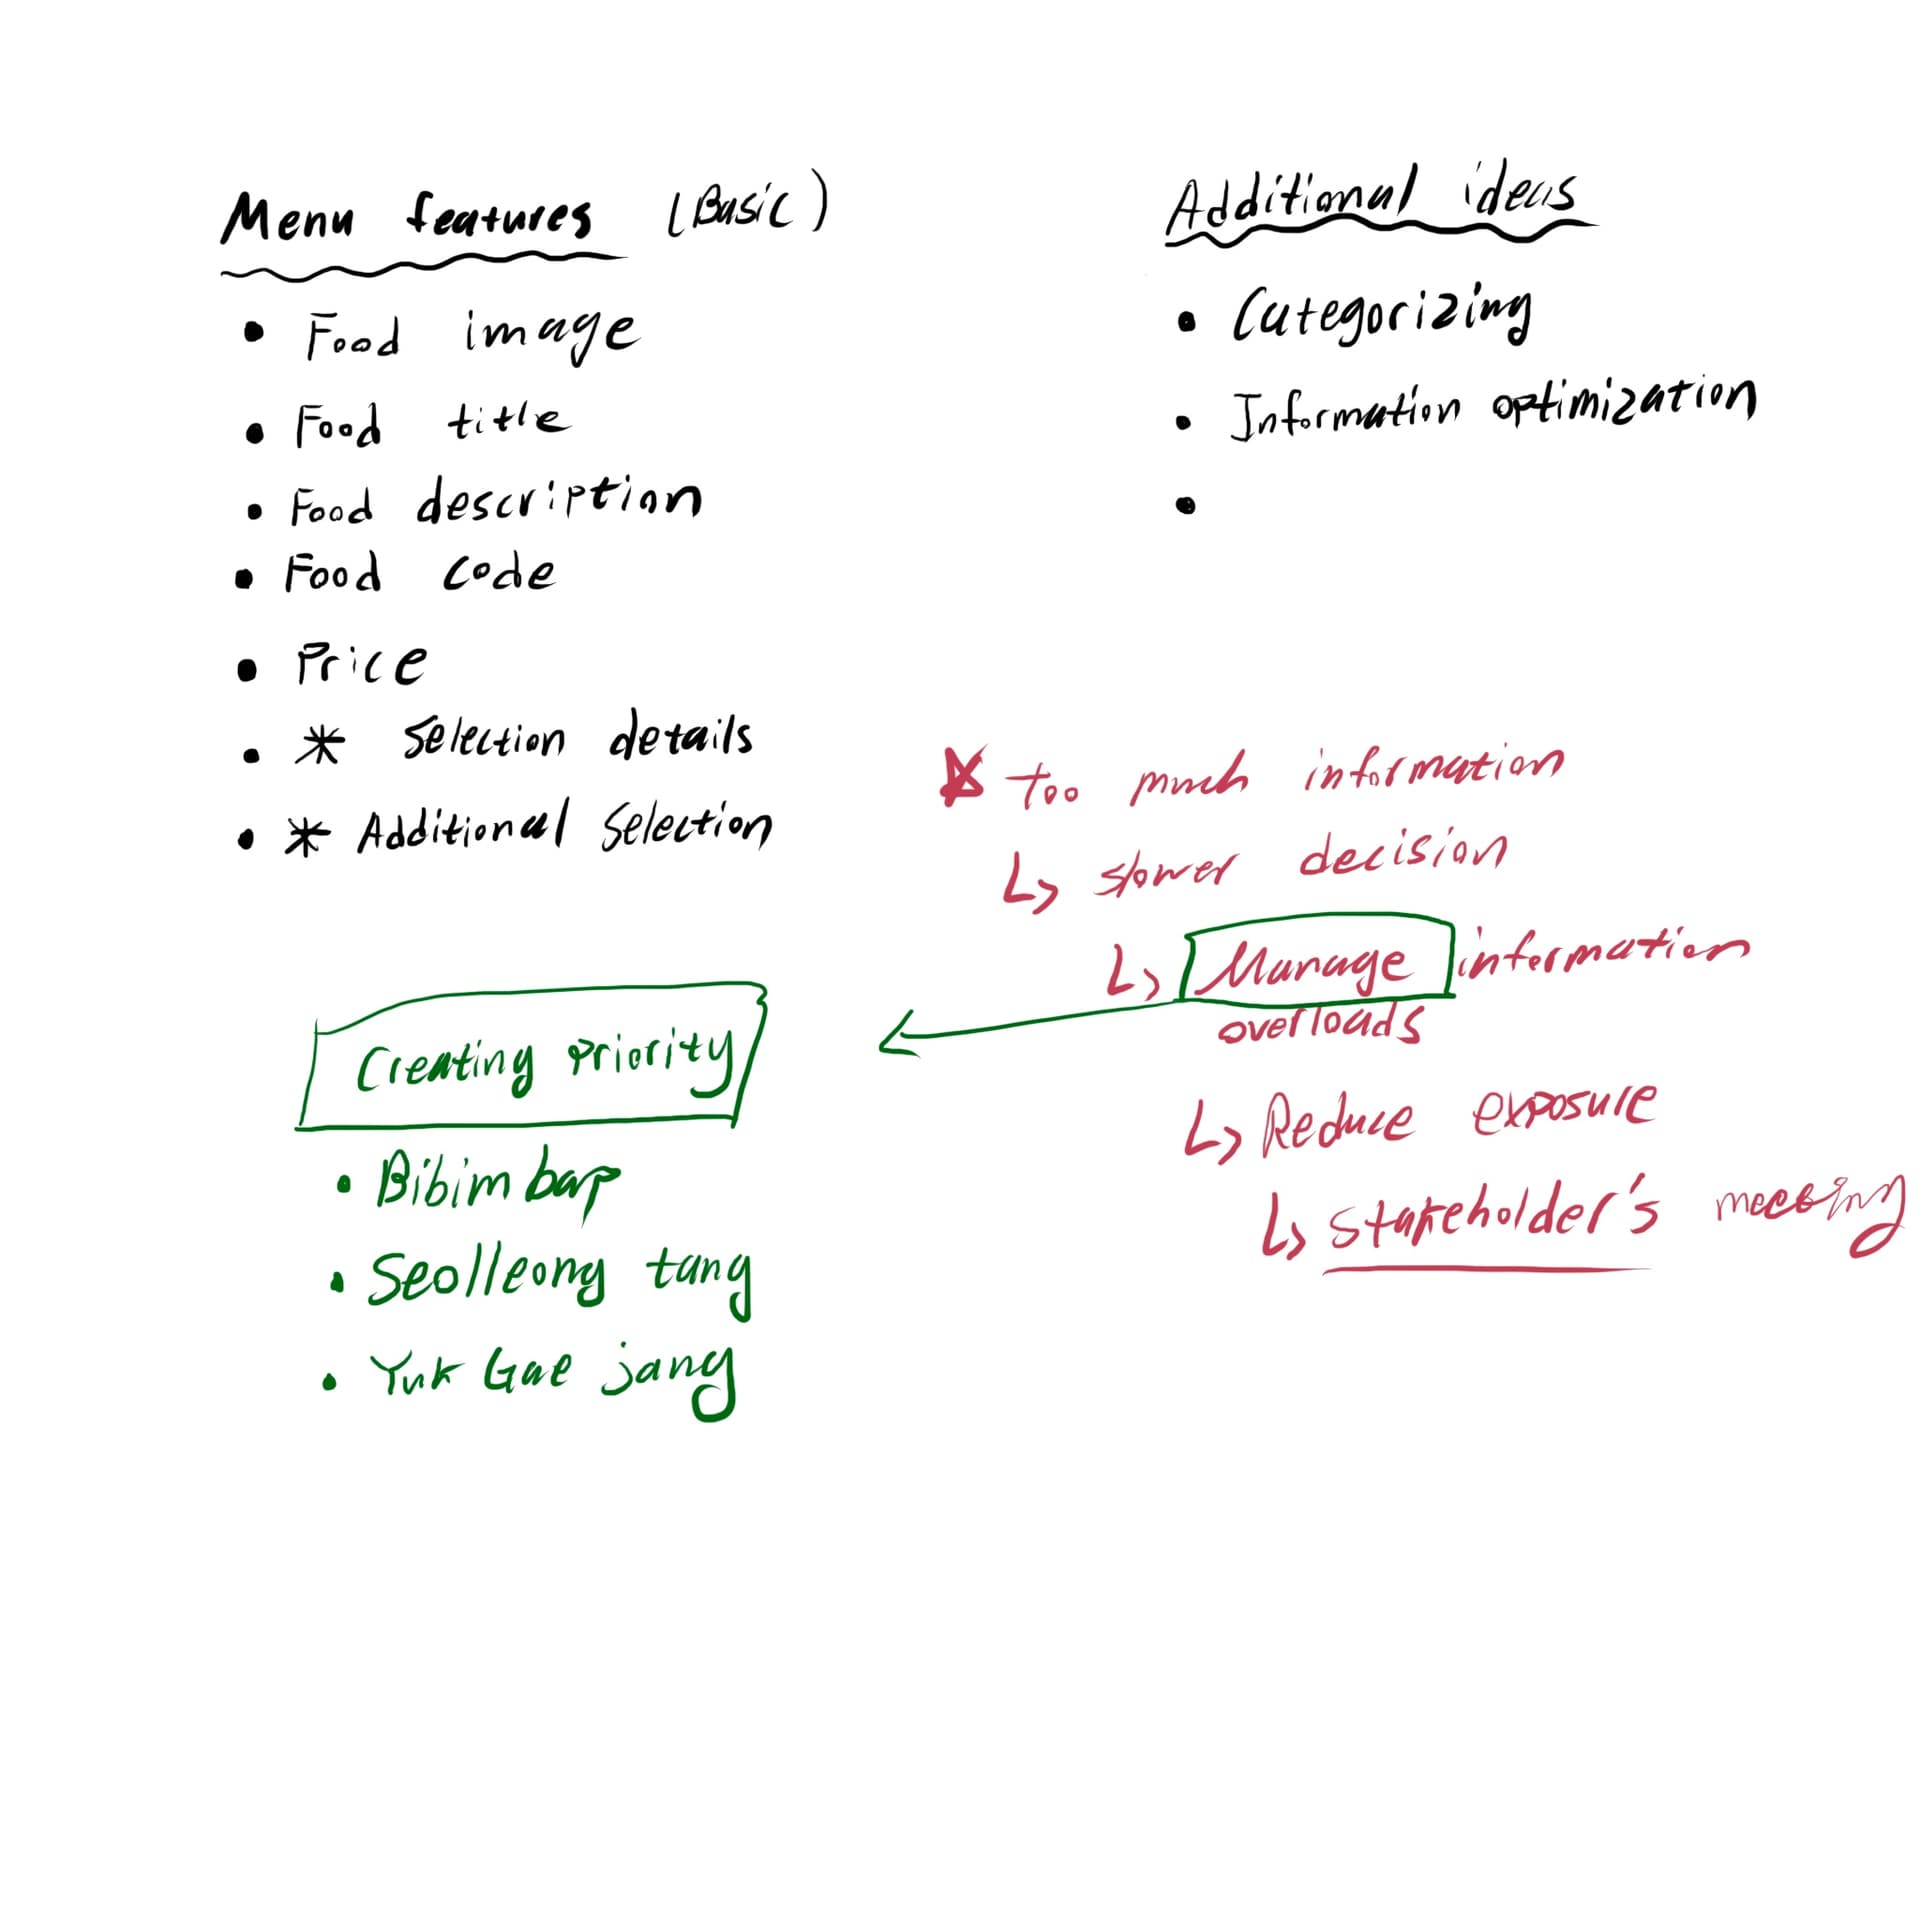 Menu features (Basic)
• Food image
• Food title
• Food description
• Food code
• Price
• * Selection details
• * Additional Selection
Additional ideas
• Categorizing
• Information optimization
•
☆ Too much information
↳ slower decision
↳ Manage information
overloads
↳ Reduce exposure
↳ stakeholder's meeting
Creating priority
• Bibim bap
• Seolleong tang
• Yuk Gae jang